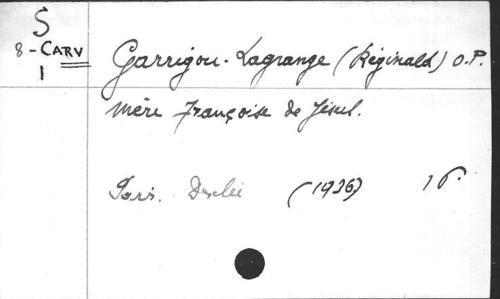 S
8 - CARV
1
Garrigou-Lagrange (Réginald) O.P.
Mère Françoise de Jésus.
Paris. Desclée (1936) 1 v.